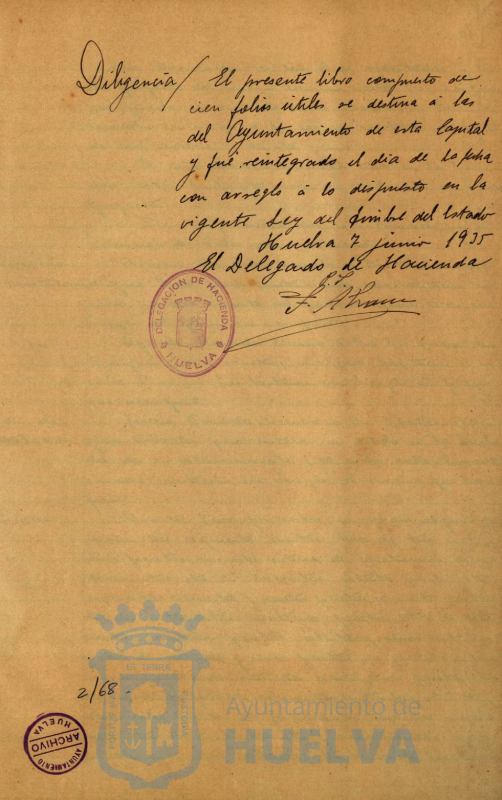 Diligencia/ El presente libro compuesto de
cien folios útiles se destina á las
del Ayuntamiento de esta Capital
y fué reintegrado el dia de la fecha
con arreglo á lo dispuesto en la
vigente Ley del timbre del Estado
Huelva 7 junio 1935
El Delegado de Hacienda
DELEGACION DE HACIENDA
HUELVA
2/68-
AYUNTAMIENTO
ARCHIVO
HUELVA
Ayuntamiento de
HUELVA